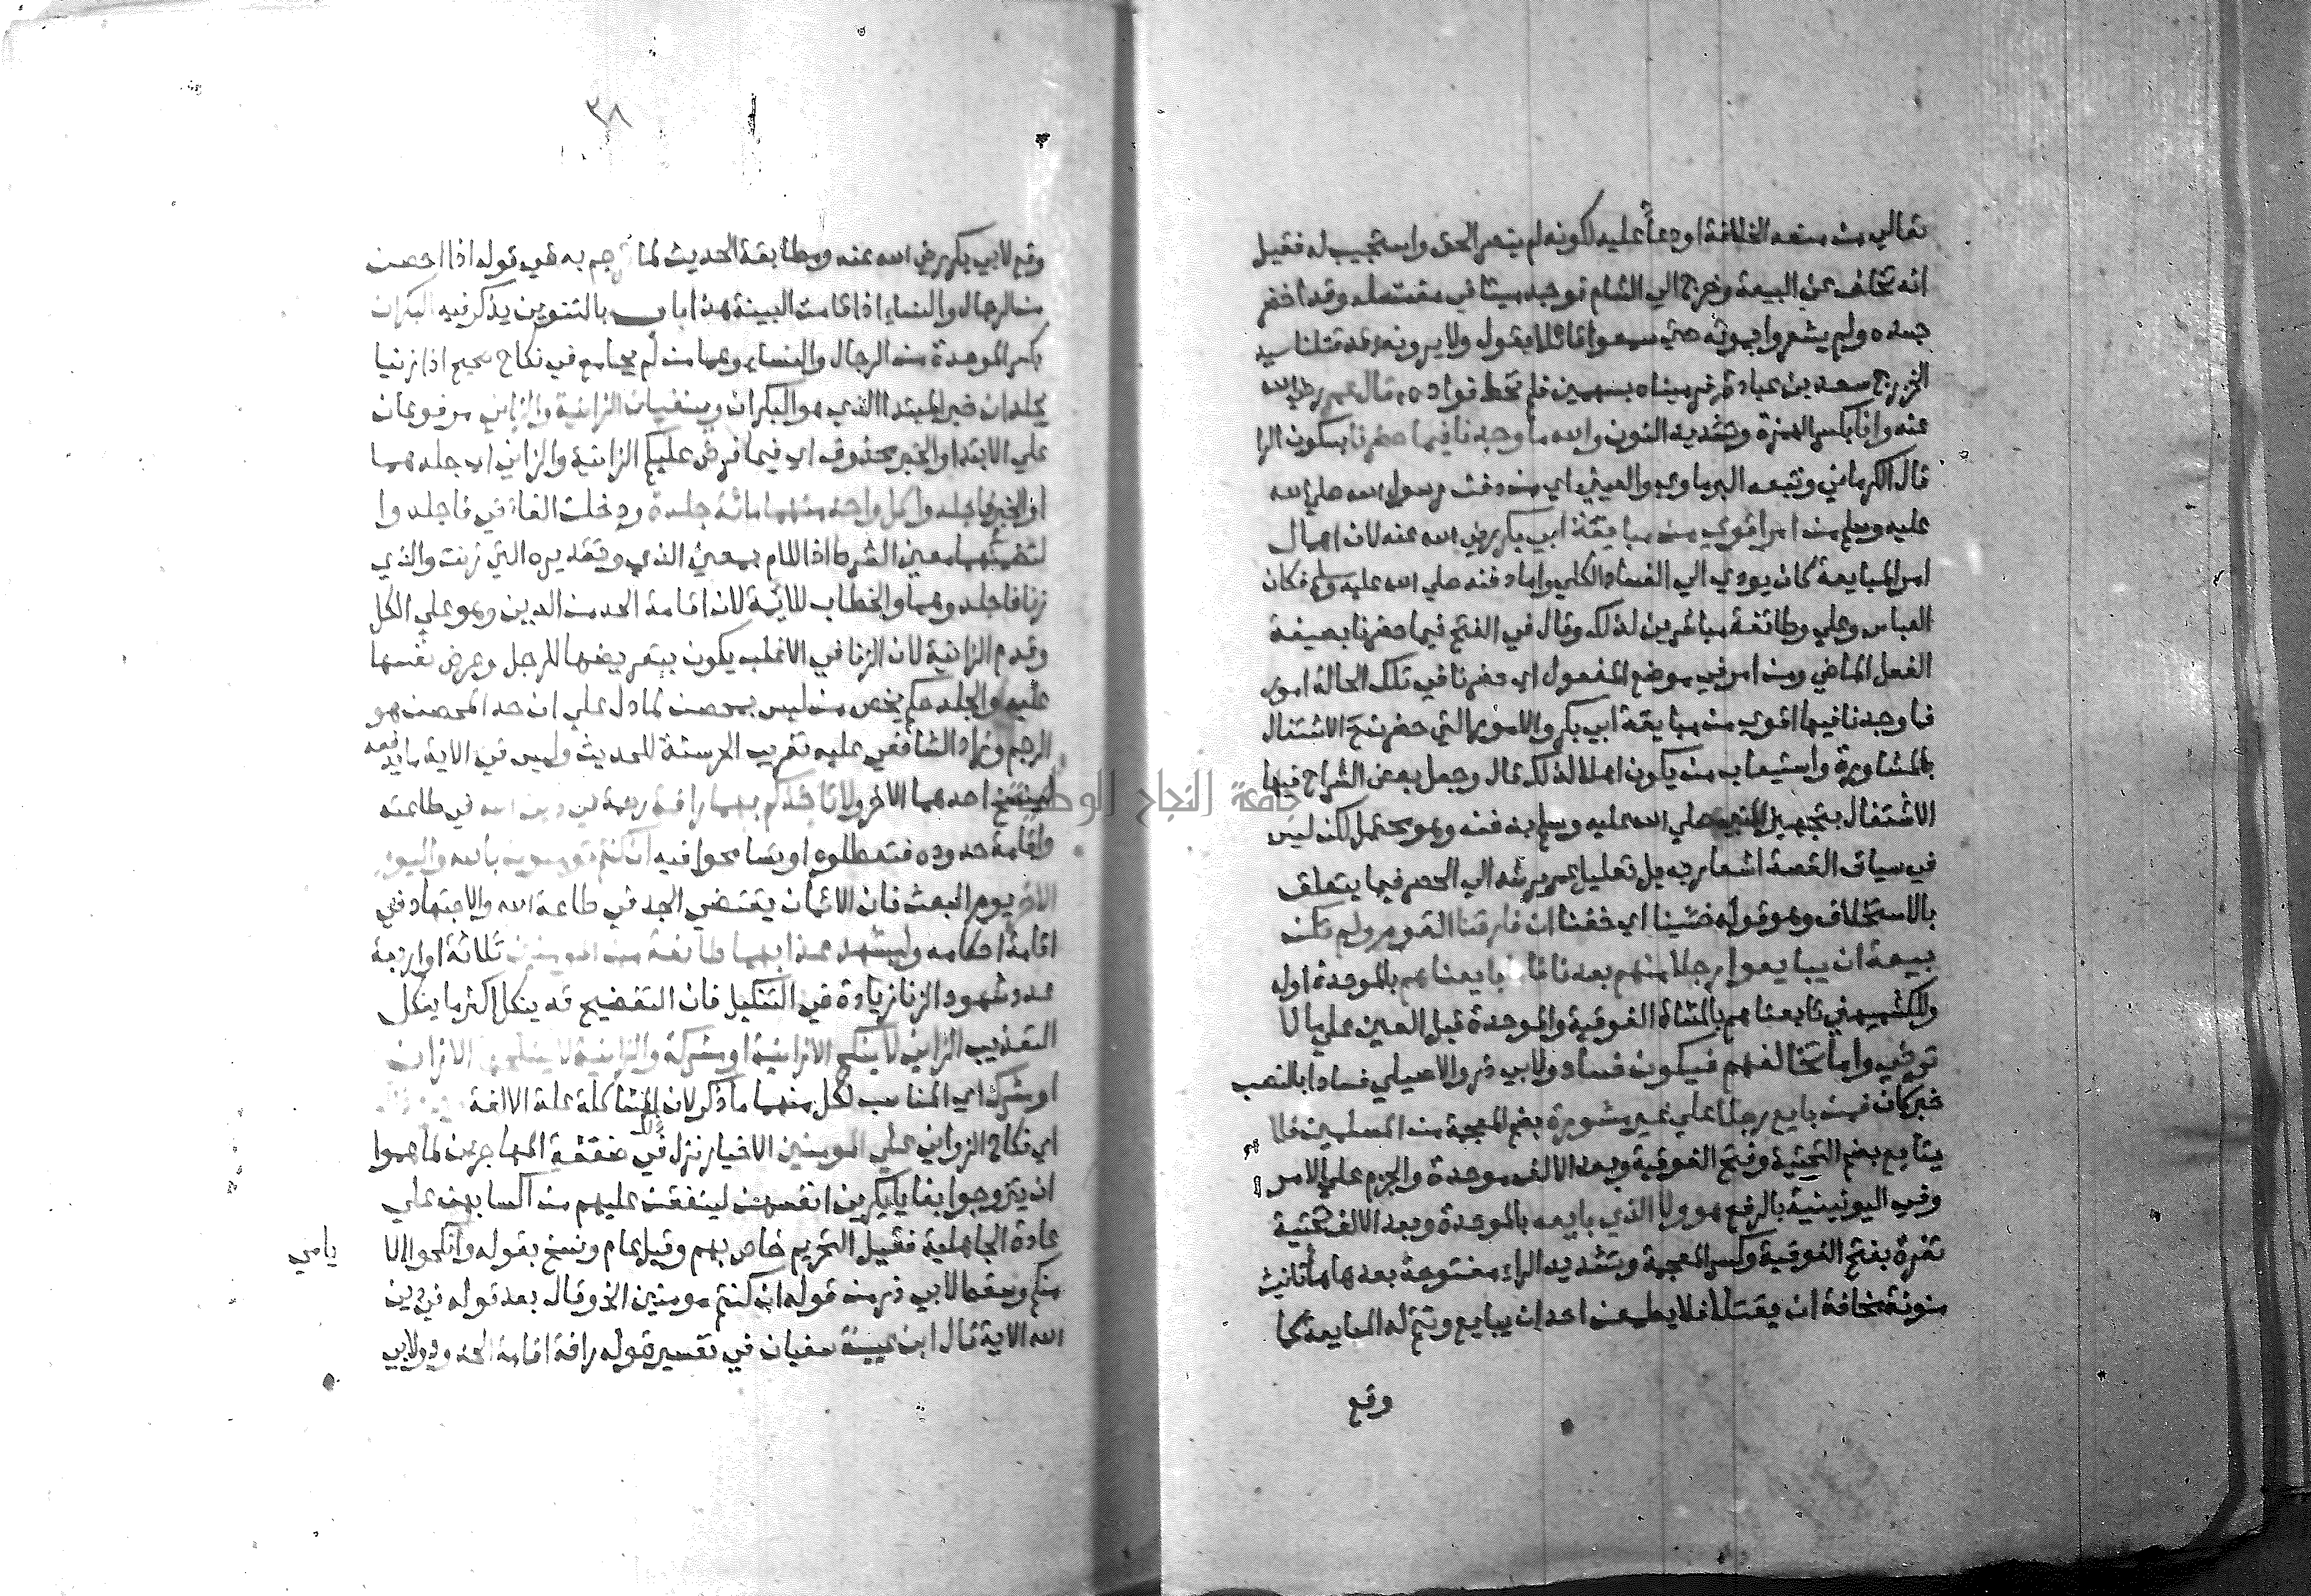 تعالي من منعه الخلافة او دعاً عليه لكونه لم ينصر الحق واستجيب له فقيل
انه تخلف عن البيعة وخرج الي الشام فوجد ميتا في مغتسله وقد اخضر
جسده ولم يشعروا بموته حتي سمعوا قائلا يقول ولا يرونه قد قتلنا سيد
الخزرج سعد بن عبادة فرميناه بسهمين فلم نخط فواده قال عمر رضي الله
عنه وانا بكسر الهمزة وتشديد النون والله ما وجدنا فيما حضرنا بسكون الرا
قال الكرماني وتبعه البرماوي والعيني اي من دفن رسول الله صلي الله
عليه وسلم من امر اقوي من مبايعة ابي بكر رضي الله عنه لان اهمال
امر المبايعة كان يودي الي الفساد الكلي واما دفنه صلي الله عليه وسلم فكان
العباس وعلي وطائفة مباشرين لذلك وقال في الفتح فيما حضرنا بصيغة
الفعل الماضي ومن امر في موضع المفعول اي حضرنا في تلك الحالة امور
فما وجدنا فيها اقوي من مبايعة ابي بكر والامور التي حضرت ح الاشتغال
بالمشاورة واستيعاب من يكون اهلا لذلك قال وجعل بعض الشراح فيها
الاشتغال بتجهيز النبي صلي الله عليه وسلم ودفنه وهو محتمل لكن ليس
في سياق القصة اشعار به بل تعليل عمر يرشد الي الحصر فيما يتعلق
بالاستخلاف وهو قوله خشينا اي خفنا ان فارقنا القوم ولم تكن
بيعة ان يبايعوا رجلا منهم بعدنا فاما بايعناهم بالموحدة اوله
وللكشميهني تابعناهم بالمثناة الفوقية والموحدة قبل العين علي ما لا
نرضي واما نخالفهم فيكون فساد ولابي ذر والاصيلي فسادا بالنصب
خبر كان فمن بايع رجلا علي غير مشورة بضم المعجمة من المسلمين فلا
يتابع بضم التحتية وفتح الفوقية وبعد الالف موحدة والجزم علي الامر
وفي اليونينية بالرفع هو ولا الذي بايعه بالموحدة وبعد الالف تحتية
تغرة بفتح الفوقية وكسر المعجمة وتشديد الراء مفتوحة بعدها هاء تانيث
منونة مخافة ان يقتلا فلا يطمعن احد ان يبايع وتتم له المبايعة كما
وقع
٣٨
وقع لابي بكر رضي الله عنه ومطابقة الحديث لما ترجم به في قوله اذا احصن
من الرجال والنساء اذا قامت البينة هذا باب بالتنوين يذكر فيه البكران
بكسر الموحدة من الرجال والنساء وهما من لم يجامع في نكاح صحيح اذا زنيا
يجلدان خبر المبتدا الذي هو البكران وينفيان الزانية والزاني مرفوعان
علي الابتدا والخبر محذوف اي فيما فرض عليكم الزانية والزاني اي جلدهما
او الخبر فاجلدوا كل واحد منهما مائة جلدة ودخلت الفاء في فاجلدوا
لتضمنهما معني الشرط اذ اللام بمعني الذي وتقديره التي زنت والذي
زنا فاجلدوهما والخطاب للائمة لان اقامة الحد من الدين وهو علي الكل
وقدم الزانية لان الزنا في الاغلب يكون بتعريضها للرجل وعرض نفسها
عليه والجلد حكم يخص من ليس بمحصن لما دل علي ان حد المحصن هو
الرجم وزاد الشافعي عليه تغريب الحر سنة للحديث وليس في الاية ما يدفعه
لينسخ احدهما الاخر ولا تاخذكم بهما رافة رحمة في دين الله في طاعته
واقامة حدوده فتعطلوه او تسامحوا فيه ان كنتم تومنون بالله واليوم
الاخر يوم البعث فان الايمان يقتضي الجد في طاعة الله والاجتهاد في
اقامة احكامه وليشهد عذابهما طائفة من المومنين ثلاثة او اربعة
عدد شهود الزنا زيادة في التنكيل فان التفضيح قد ينكل اكثر ما ينكل
التعذيب الزاني لا ينكح الا زانية او مشركة والزانية لا ينكحها الا زان
او مشرك اي المناسب لكل منهما ما ذكر لان المشاكلة علة الالفة
اي نكاح الزواني علي المومنين الاخيار نزل ذلك في ضعفة المهاجرين لما هموا
ان يتزوجوا بغايا يكرين انفسهن لينفقن عليهم من اكسابهن علي
عادة الجاهلية فقيل التحريم خاص بهم وقيل عام ونسخ بقوله وانكحوا الا
يامي
منكم وسقط لابي ذر من قوله ان كنتم مومنين الخ وقال بعد قوله في دين
الله الاية قال ابن عيينة سفيان في تفسير قوله رافة اقامة الحد ولابي
جامعة النجاح الوط